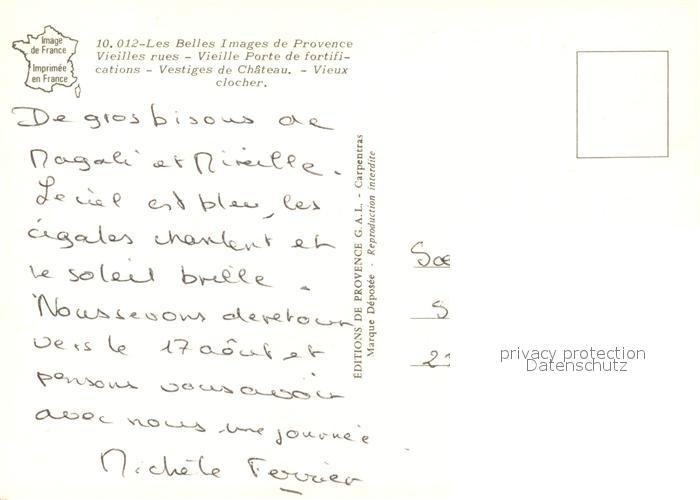 Image
de France
Imprimée
en France
10.012-Les Belles Images de Provence
Vieilles rues - Vieille Porte de fortifi-
cations - Vestiges de Château. - Vieux
clocher.
De gros bisous de
Magali et Mireille.
Le ciel est bleu, les
cigales chantent et
le soleil brille.
Nous serons de retour
vers le 17 août et
pensons vous avoir
avec nous une journée
Michèle Ferrier
ÉDITIONS DE PROVENCE G.A.L. - Carpentras
Marque Déposée - Reproduction interdite
S
21
privacy protection
Datenschutz